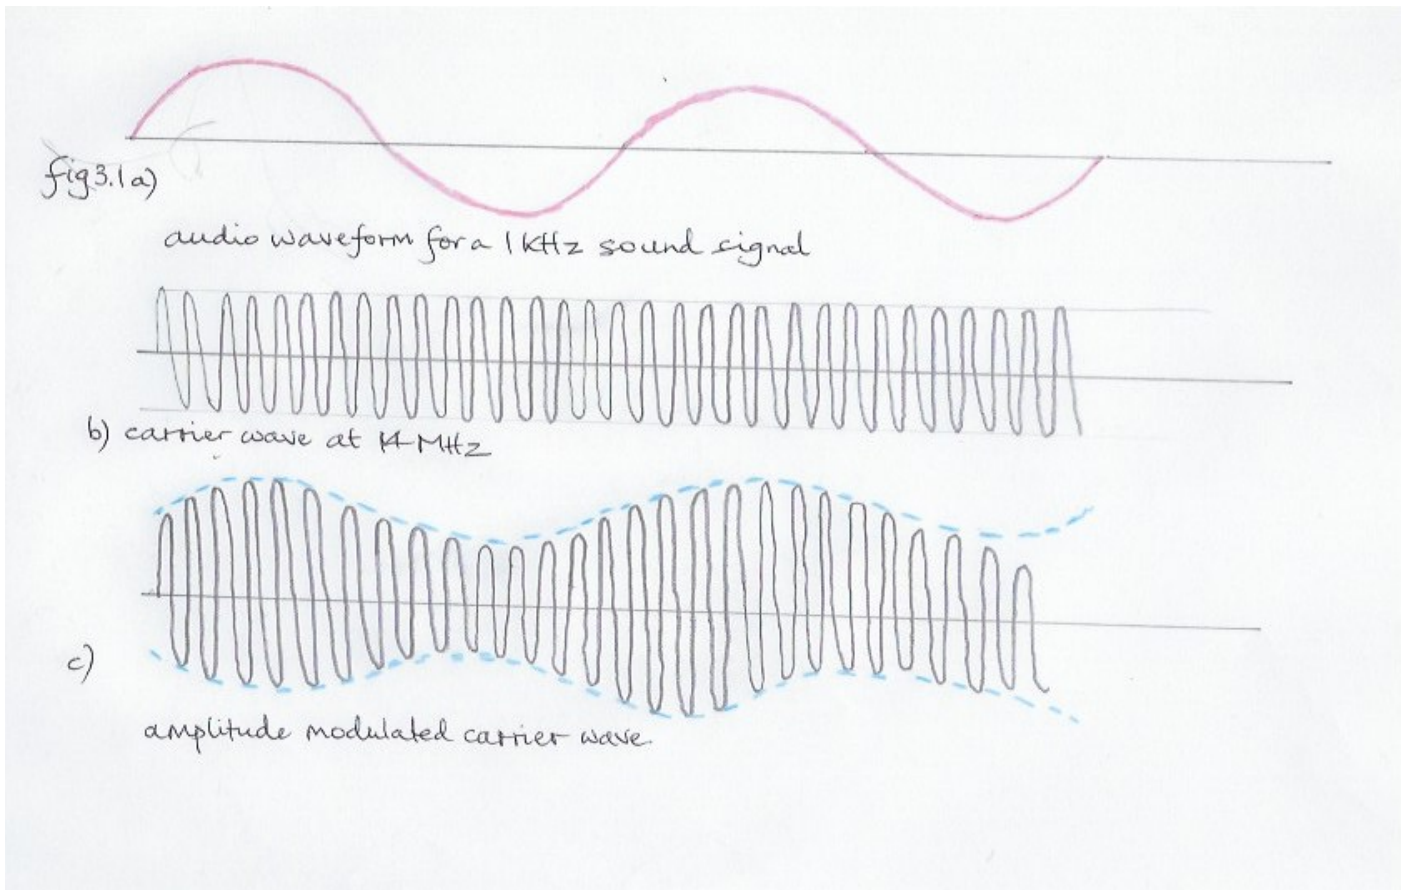 fig 3.1 a)
audio waveform for a 1 kHz sound signal
b) carrier wave at 14 MHz
c)
amplitude modulated carrier wave.